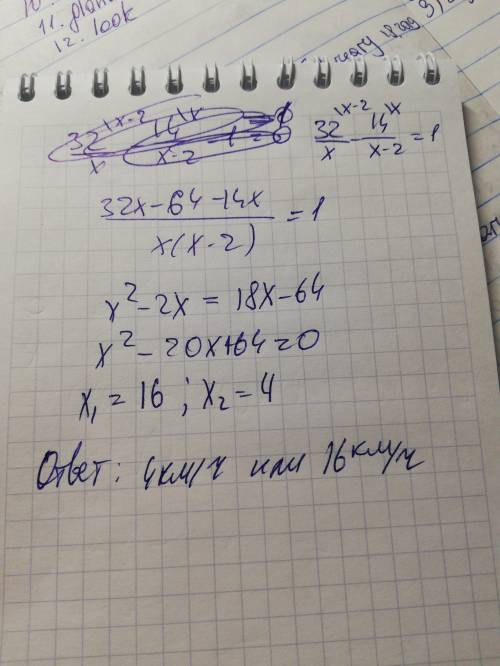 11. plan
12. look
32\x-2 / x - 14\x / x-2 = 1
(32x-64-14x) / (x(x-2)) = 1
x² - 2x = 18x - 64
x² - 20x + 64 = 0
x₁ = 16 ; x₂ = 4
Ответ: 4км/ч или 16км/ч